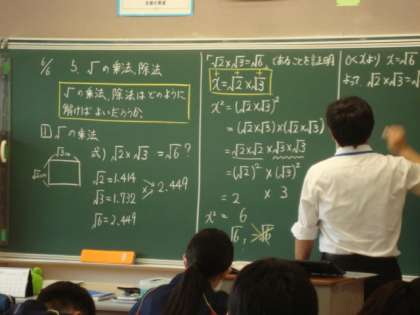 6/6 5、√の乗法、除法
√の乗法、除法はどのように
解けばよいだろうか。
1 √の乗法
√3cm
√2cm
式) √2×√3 = √6 ?
√2 = 1.414
√3 = 1.732
× 2.449
√6 = 2.449
「√2×√3=√6」であることを証明
x = √2×√3
x² = (√2×√3)²
= (√2×√3)×(√2×√3)
= √2×√2×√3×√3
= (√2)² × (√3)²
= 2 × 3
x² = 6
√6, -√6
0<xより x=√6
よって √2×√3=√